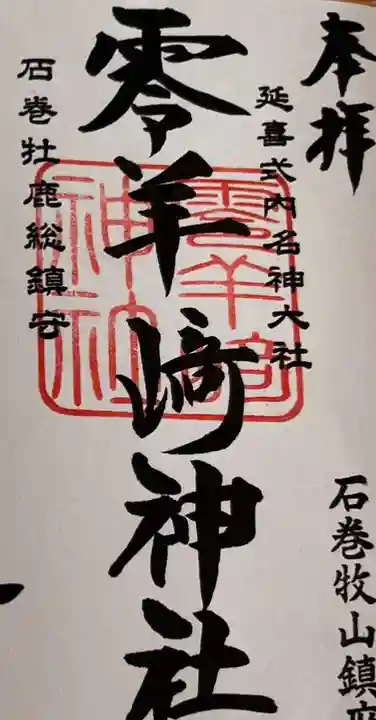 奉拝
石巻牧山鎮座
延喜式内名神大社
零羊﨑神社
石巻牡鹿総鎮守
零羊崎
神社